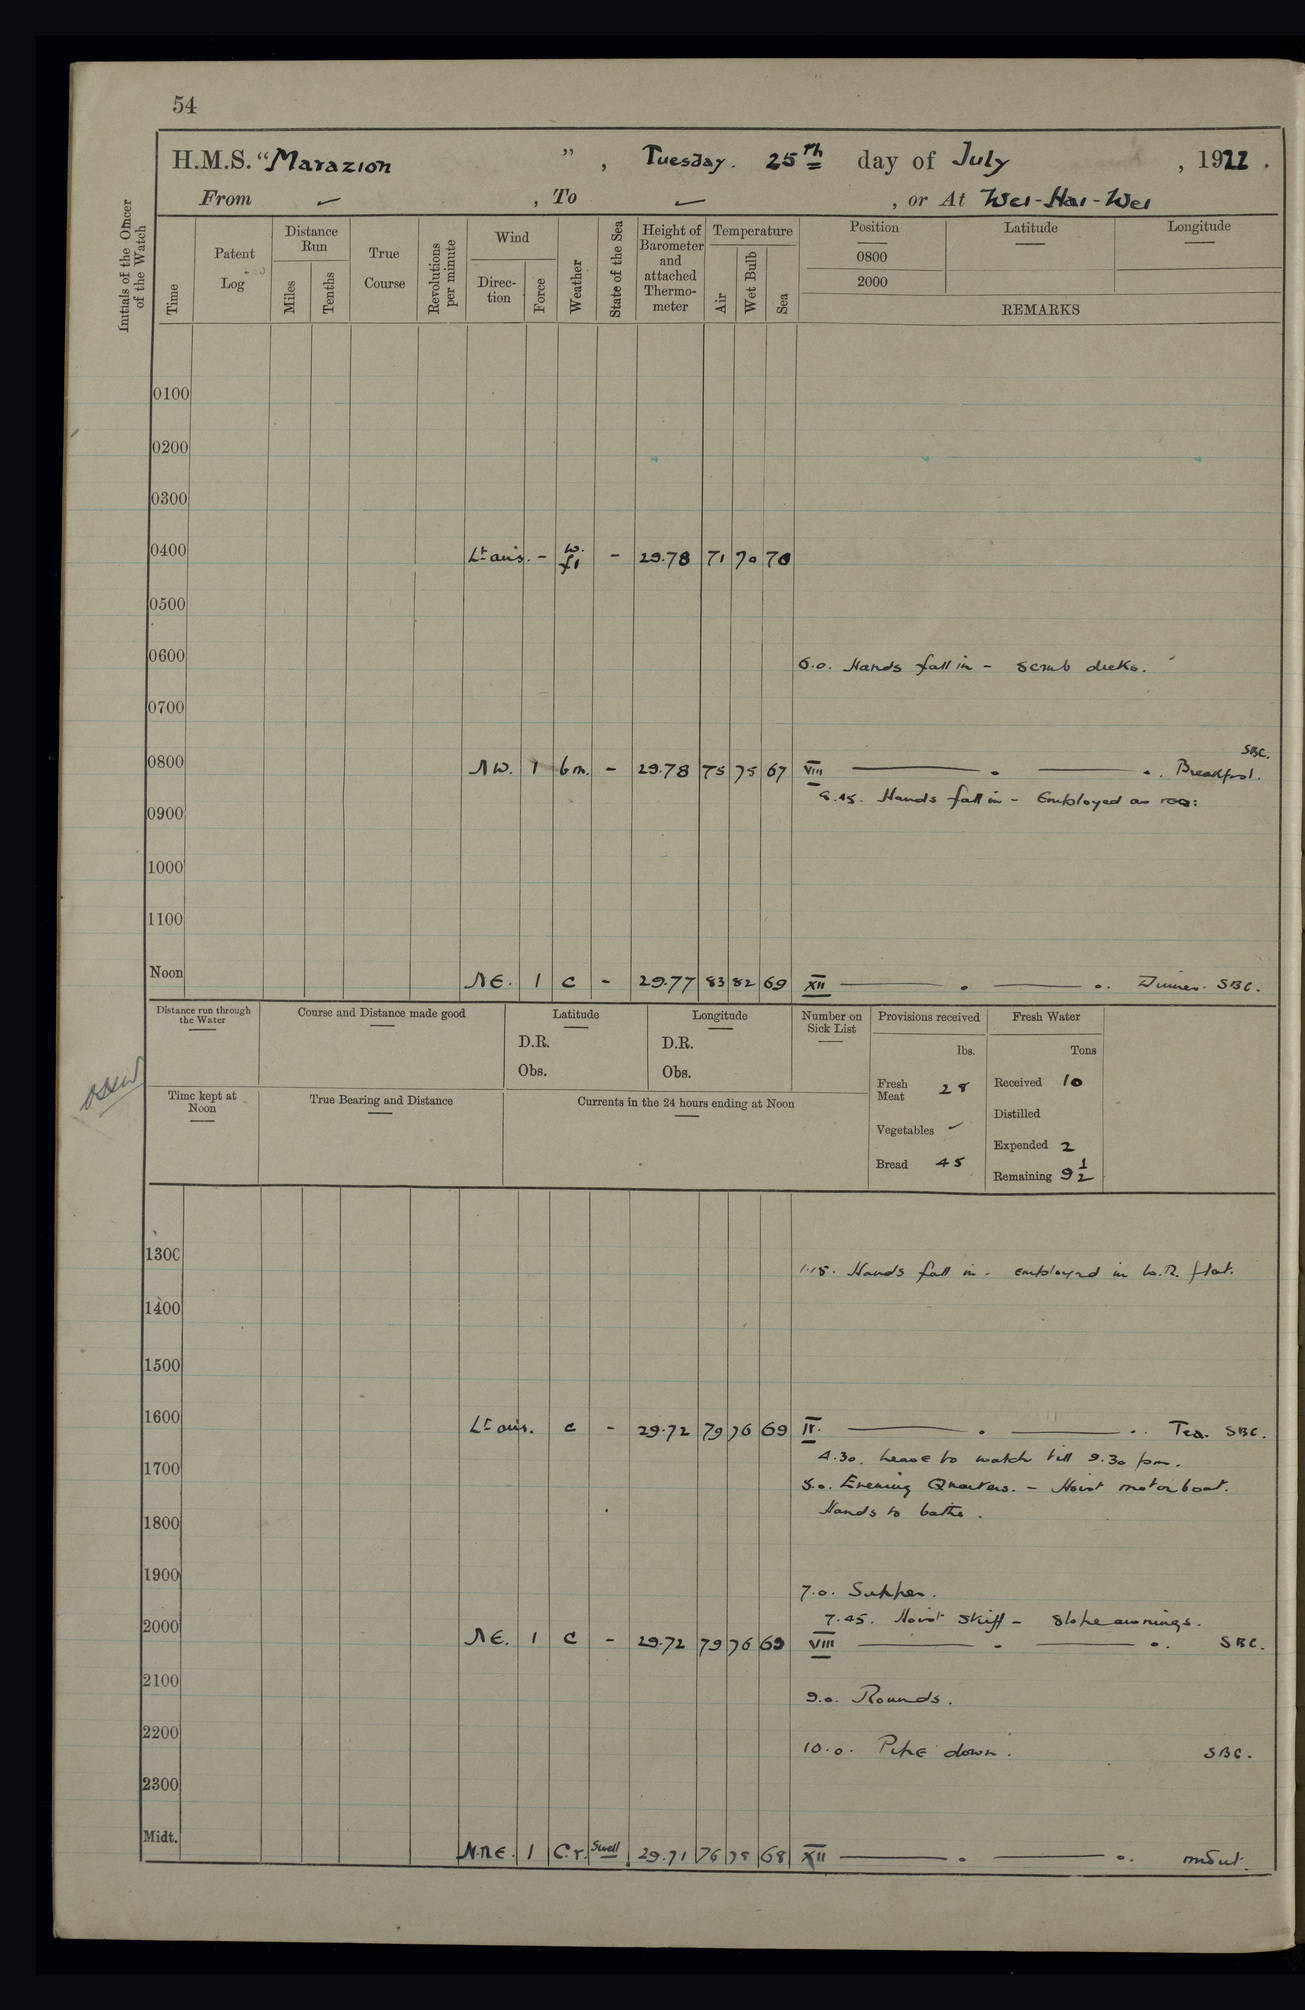 54
H.M.S. "Marazion", Tuesday. 25th day of July, 1922.
From ✓, To ✓, or At Wei-Hai-Wei
Initials of the Officer of the Watch
Time
Patent Log
Distance Run
Miles
Tenths
True Course
Revolutions per minute
Wind
Direction
Force
Weather
State of the Sea
Height of Barometer and attached Thermometer
Temperature
Air
Wet Bulb
Sea
Position
Latitude
Longitude
0800
2000
REMARKS
0100
0200
0300
0400 Lt airs. - w. f1 - 29.78 71 70 70
0500
0600 6.0. Hands fall in - scrub decks.
0700
SBC.
0800 NW. 1 bm. - 29.78 75 75 67 VIII Breakfast.
8.45. Hands fall in - Employed as req:
0900
1000
1100
Noon NE. 1 c - 29.77 83 82 69 XII Dinner. SBC.
Distance run through the Water
Course and Distance made good
Latitude
D.R.
Obs.
Longitude
D.R.
Obs.
Number on Sick List
Provisions received
lbs.
Fresh Meat 28
Vegetables ✓
Bread 45
Fresh Water
Tons
Received 10
Distilled
Expended 2
Remaining 9 1/2
Time kept at Noon
True Bearing and Distance
Currents in the 24 hours ending at Noon
1300 1.15. Hands fall in - employed in W.R. flat.
1400
1500
1600 Lt airs. c - 29.72 79 76 69 IV. Tea. SBC.
4.30. Leave to watch till 9.30 pm.
1700 5.0. Evening Quarters. - Hoist motor boat.
Hands to bathe.
1800
1900 7.0. Supper.
7.45. Hoist Skiff - slope awnings.
2000 NE. 1 c - 29.72 79 76 69 VIII SBC.
2100 9.0. Rounds.
2200 10.0. Pipe down. SBC.
2300
Midt. N.N.E. 1 C.r. Swell 29.71 76 75 68 XII